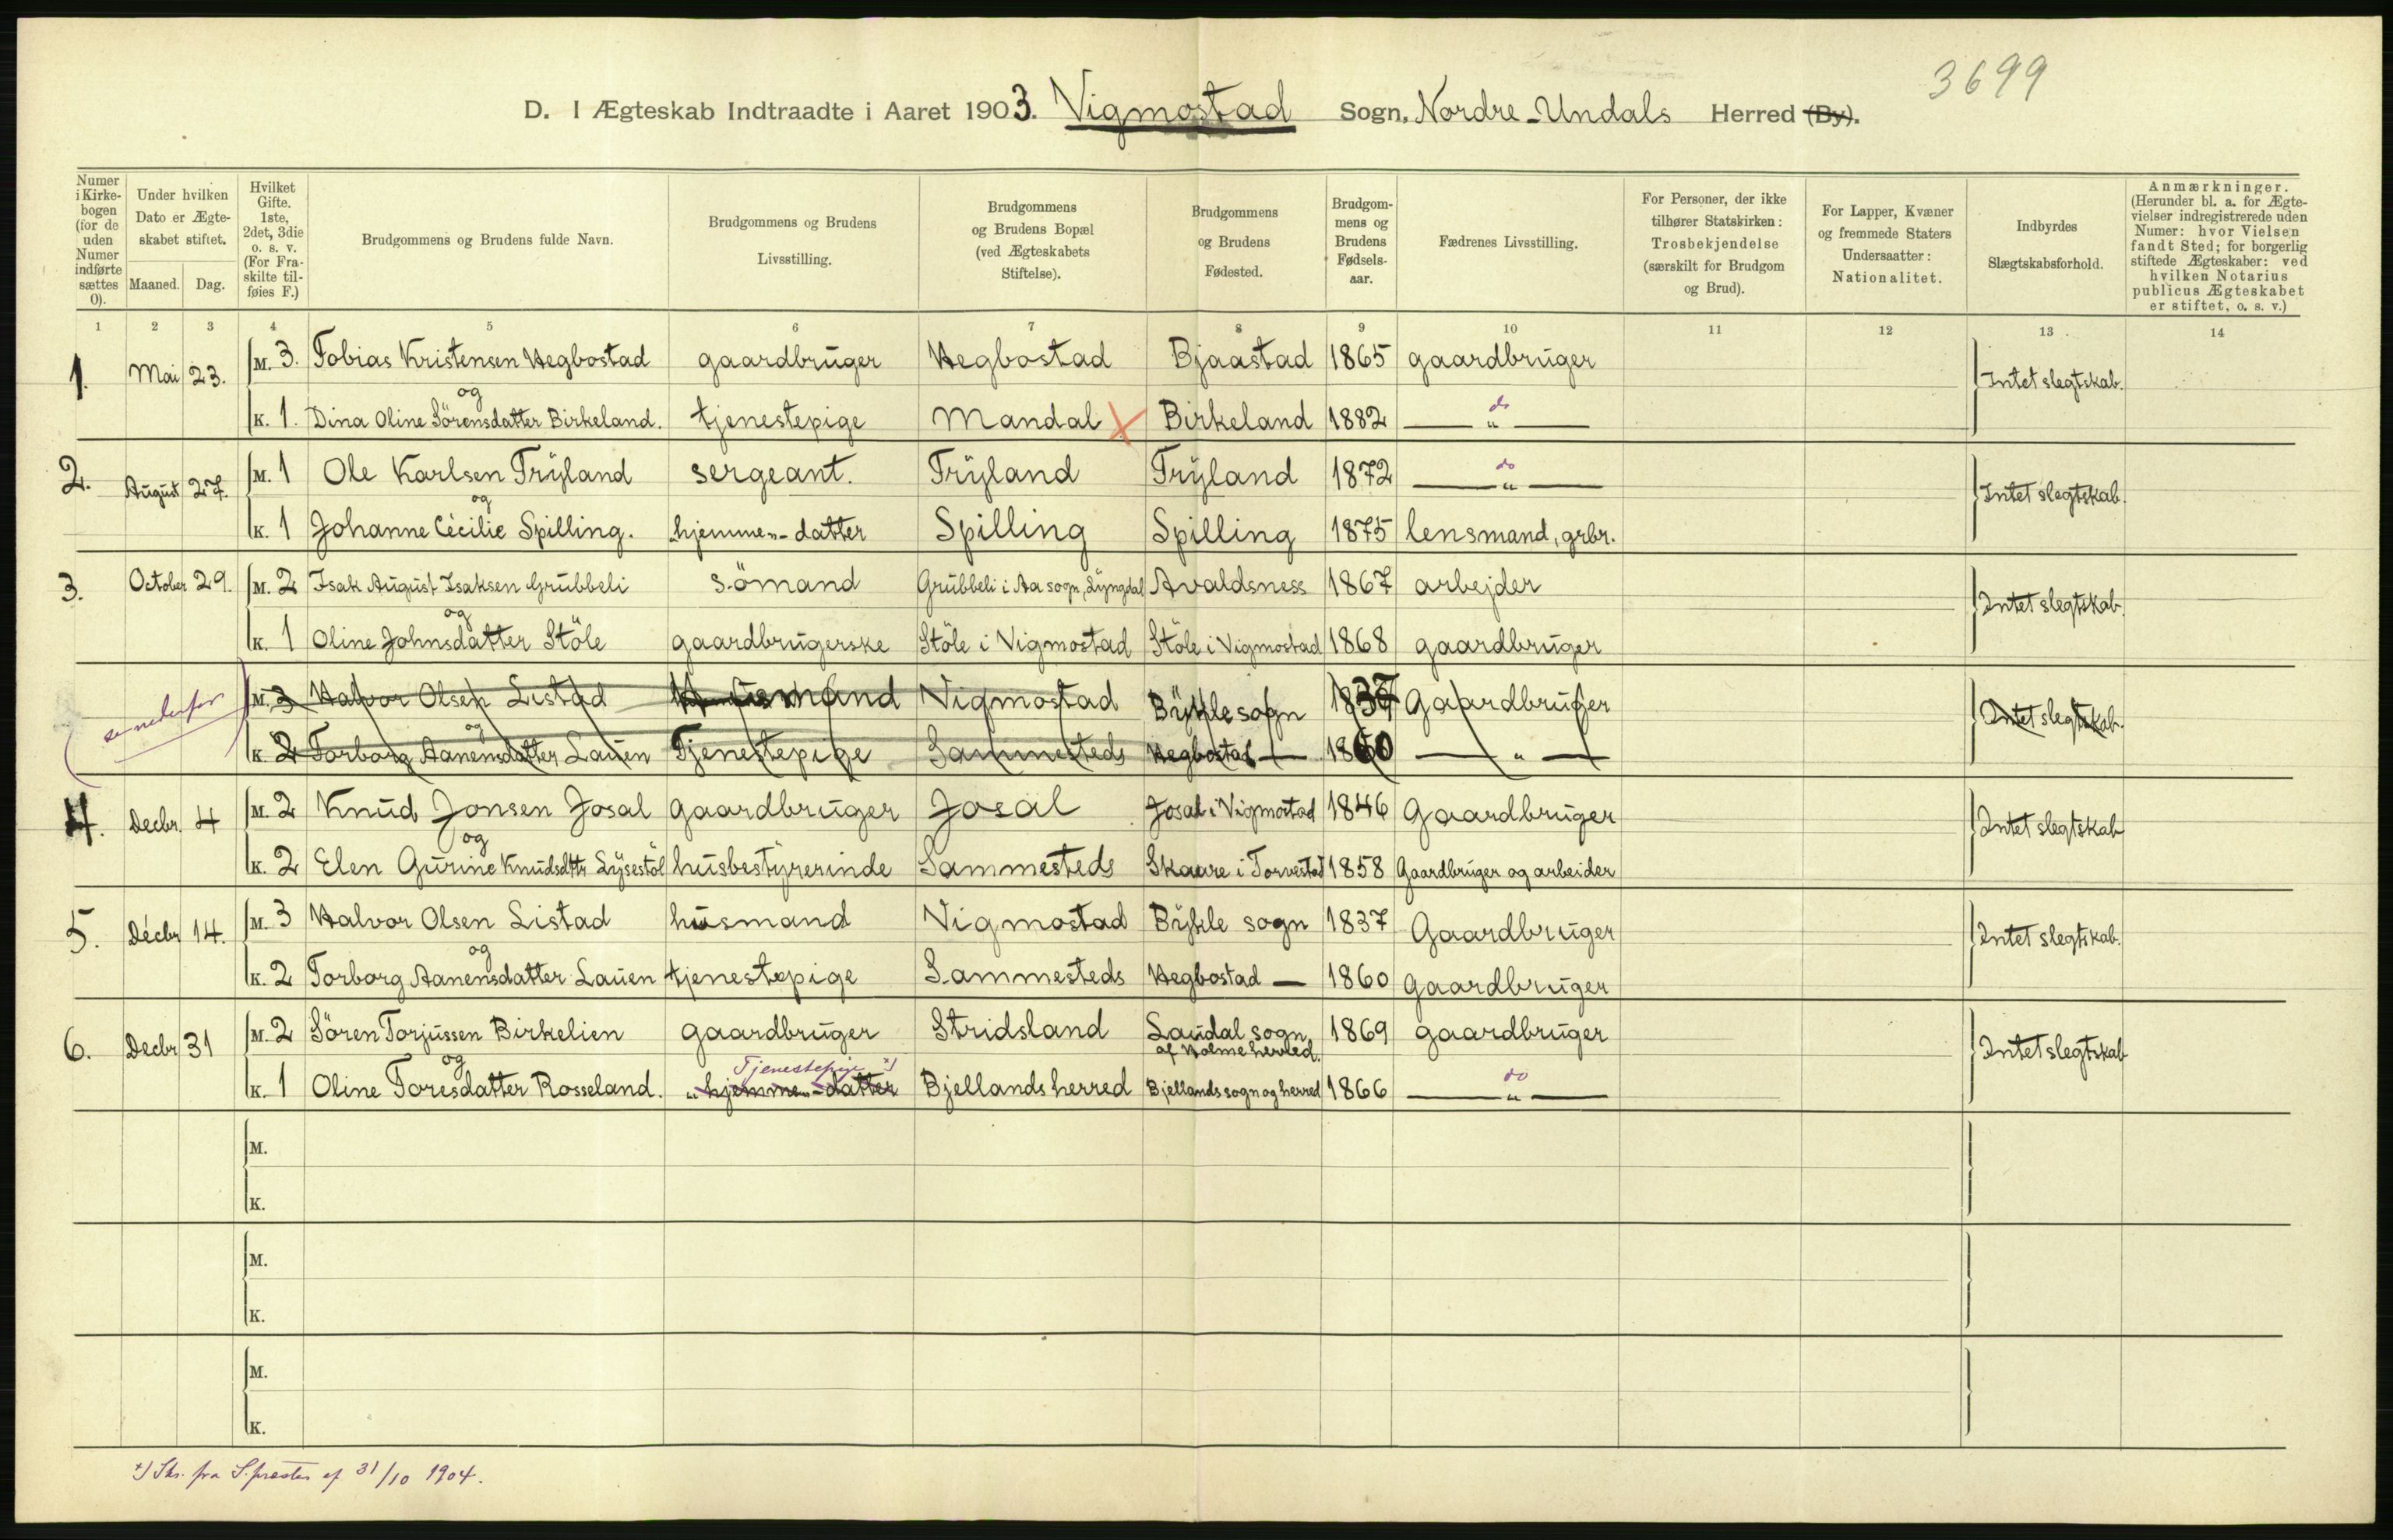 3699
D. I Ægteskab Indtraadte i Aaret 1903. Vigmostad Sogn, Nordre-Undals Herred (By).
Numer i Kirkebogen (for de uden Numer indførte sættes 0). | Under hvilken Dato er Ægteskabet stiftet. Maaned. Dag. | Hvilket Gifte. 1ste, 2det, 3die o. s. v. (For Fraskilte tilføies F.) | Brudgommens og Brudens fulde Navn. | Brudgommens og Brudens Livsstilling. | Brudgommens og Brudens Bopæl (ved Ægteskabets Stiftelse). | Brudgommens og Brudens Fødested. | Brudgommens og Brudens Fødselsaar. | Fædrenes Livsstilling. | For Personer, der ikke tilhører Statskirken: Trosbekjendelse (særskilt for Brudgom og Brud). | For Lapper, Kvæner og fremmede Staters Undersaatter: Nationalitet. | Indbyrdes Slægtskabsforhold. | Anmærkninger. (Herunder bl. a. for Ægtevielser indregistrerede uden Numer: hvor Vielsen fandt Sted; for borgerlig stiftede Ægteskaber: ved hvilken Notarius publicus Ægteskabet er stiftet, o. s. v.)
1 2 3 4 5 6 7 8 9 10 11 12 13 14
1. Mai 23. M. 3. Tobias Kristensen Hegbostad gaardbruger Hegbostad Bjaastad 1865 gaardbruger Intet slegtskab.
og
K. 1. Dina Oline Sörensdatter Birkeland. tjenestepige Mandal X Birkeland 1882 do — " —
2. August 27. M. 1 Ole Karlsen Trÿland sergeant. Trÿland Trÿland 1872 do — " — Intet slegtskab.
og
K. 1 Johanne Cecilie Spilling. "hjemme"-datter Spilling Spilling 1875 lensmand, grbr.
3. October 29. M. 2 Isak August Isaksen Grubbeli sömand Grubbeli i Aa sogn, Lyngdal Avaldsness 1867 arbejder Intet slegtskab.
og
K. 1 Oline Johnsdatter Stöle gaardbrugerske Stöle i Vigmostad Stöle i Vigmostad 1868 gaardbruger
se nedenfor M. 3 Halvor Olsen Listad Husmand Vigmostad Bÿkle sogn 1837 Gaardbruger Intet slegtskab.
og
K. 2 Torborg Aanensdatter Lauen Tjenestepige Sammesteds Hegbostad — 1860 — " —
4. Decbr. 4 M. 2 Knud Jonsen Josal gaardbruger Josal Josal i Vigmostad 1846 Gaardbruger Intet slegtskab
og
K. 2 Elen Gurine Knudsdttr Lÿsestöl husbestÿrerinde Sammesteds Skaare i Torvestad 1858 Gaardbruger og arbeider
5. Decbr 14. M. 3 Halvor Olsen Listad husmand Vigmostad Bÿkle sogn 1837 Gaardbruger Intet slegtskab.
og
K. 2 Torborg Aanensdatter Lauen tjenestepige Sammesteds Hegbostad — 1860 Gaardbruger
6. Decbr 31 M. 2 Sören Torjussen Birkelien gaardbruger Stridsland Laudal sogn af Holme herred. 1869 gaardbruger Intet slegtskab
og
Tjenestepige *)
K. 1 Oline Toresdatter Rosseland. "hjemme"-datter Bjellands herred Bjellands sogn og herred 1866 do — " —
M.
K.
M.
K.
M.
K.
*) Skr. fra S.presten af 31/10 1904.